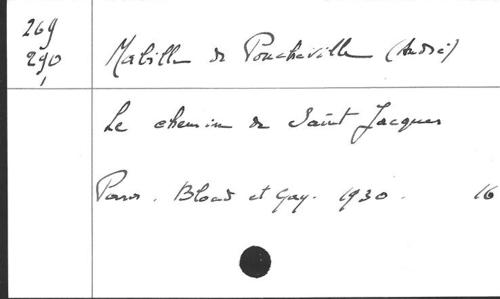 269
290
Mabille de Poncheville (André)
Le chemin de Saint Jacques
Paris. Bloud et Gay. 1930. 16